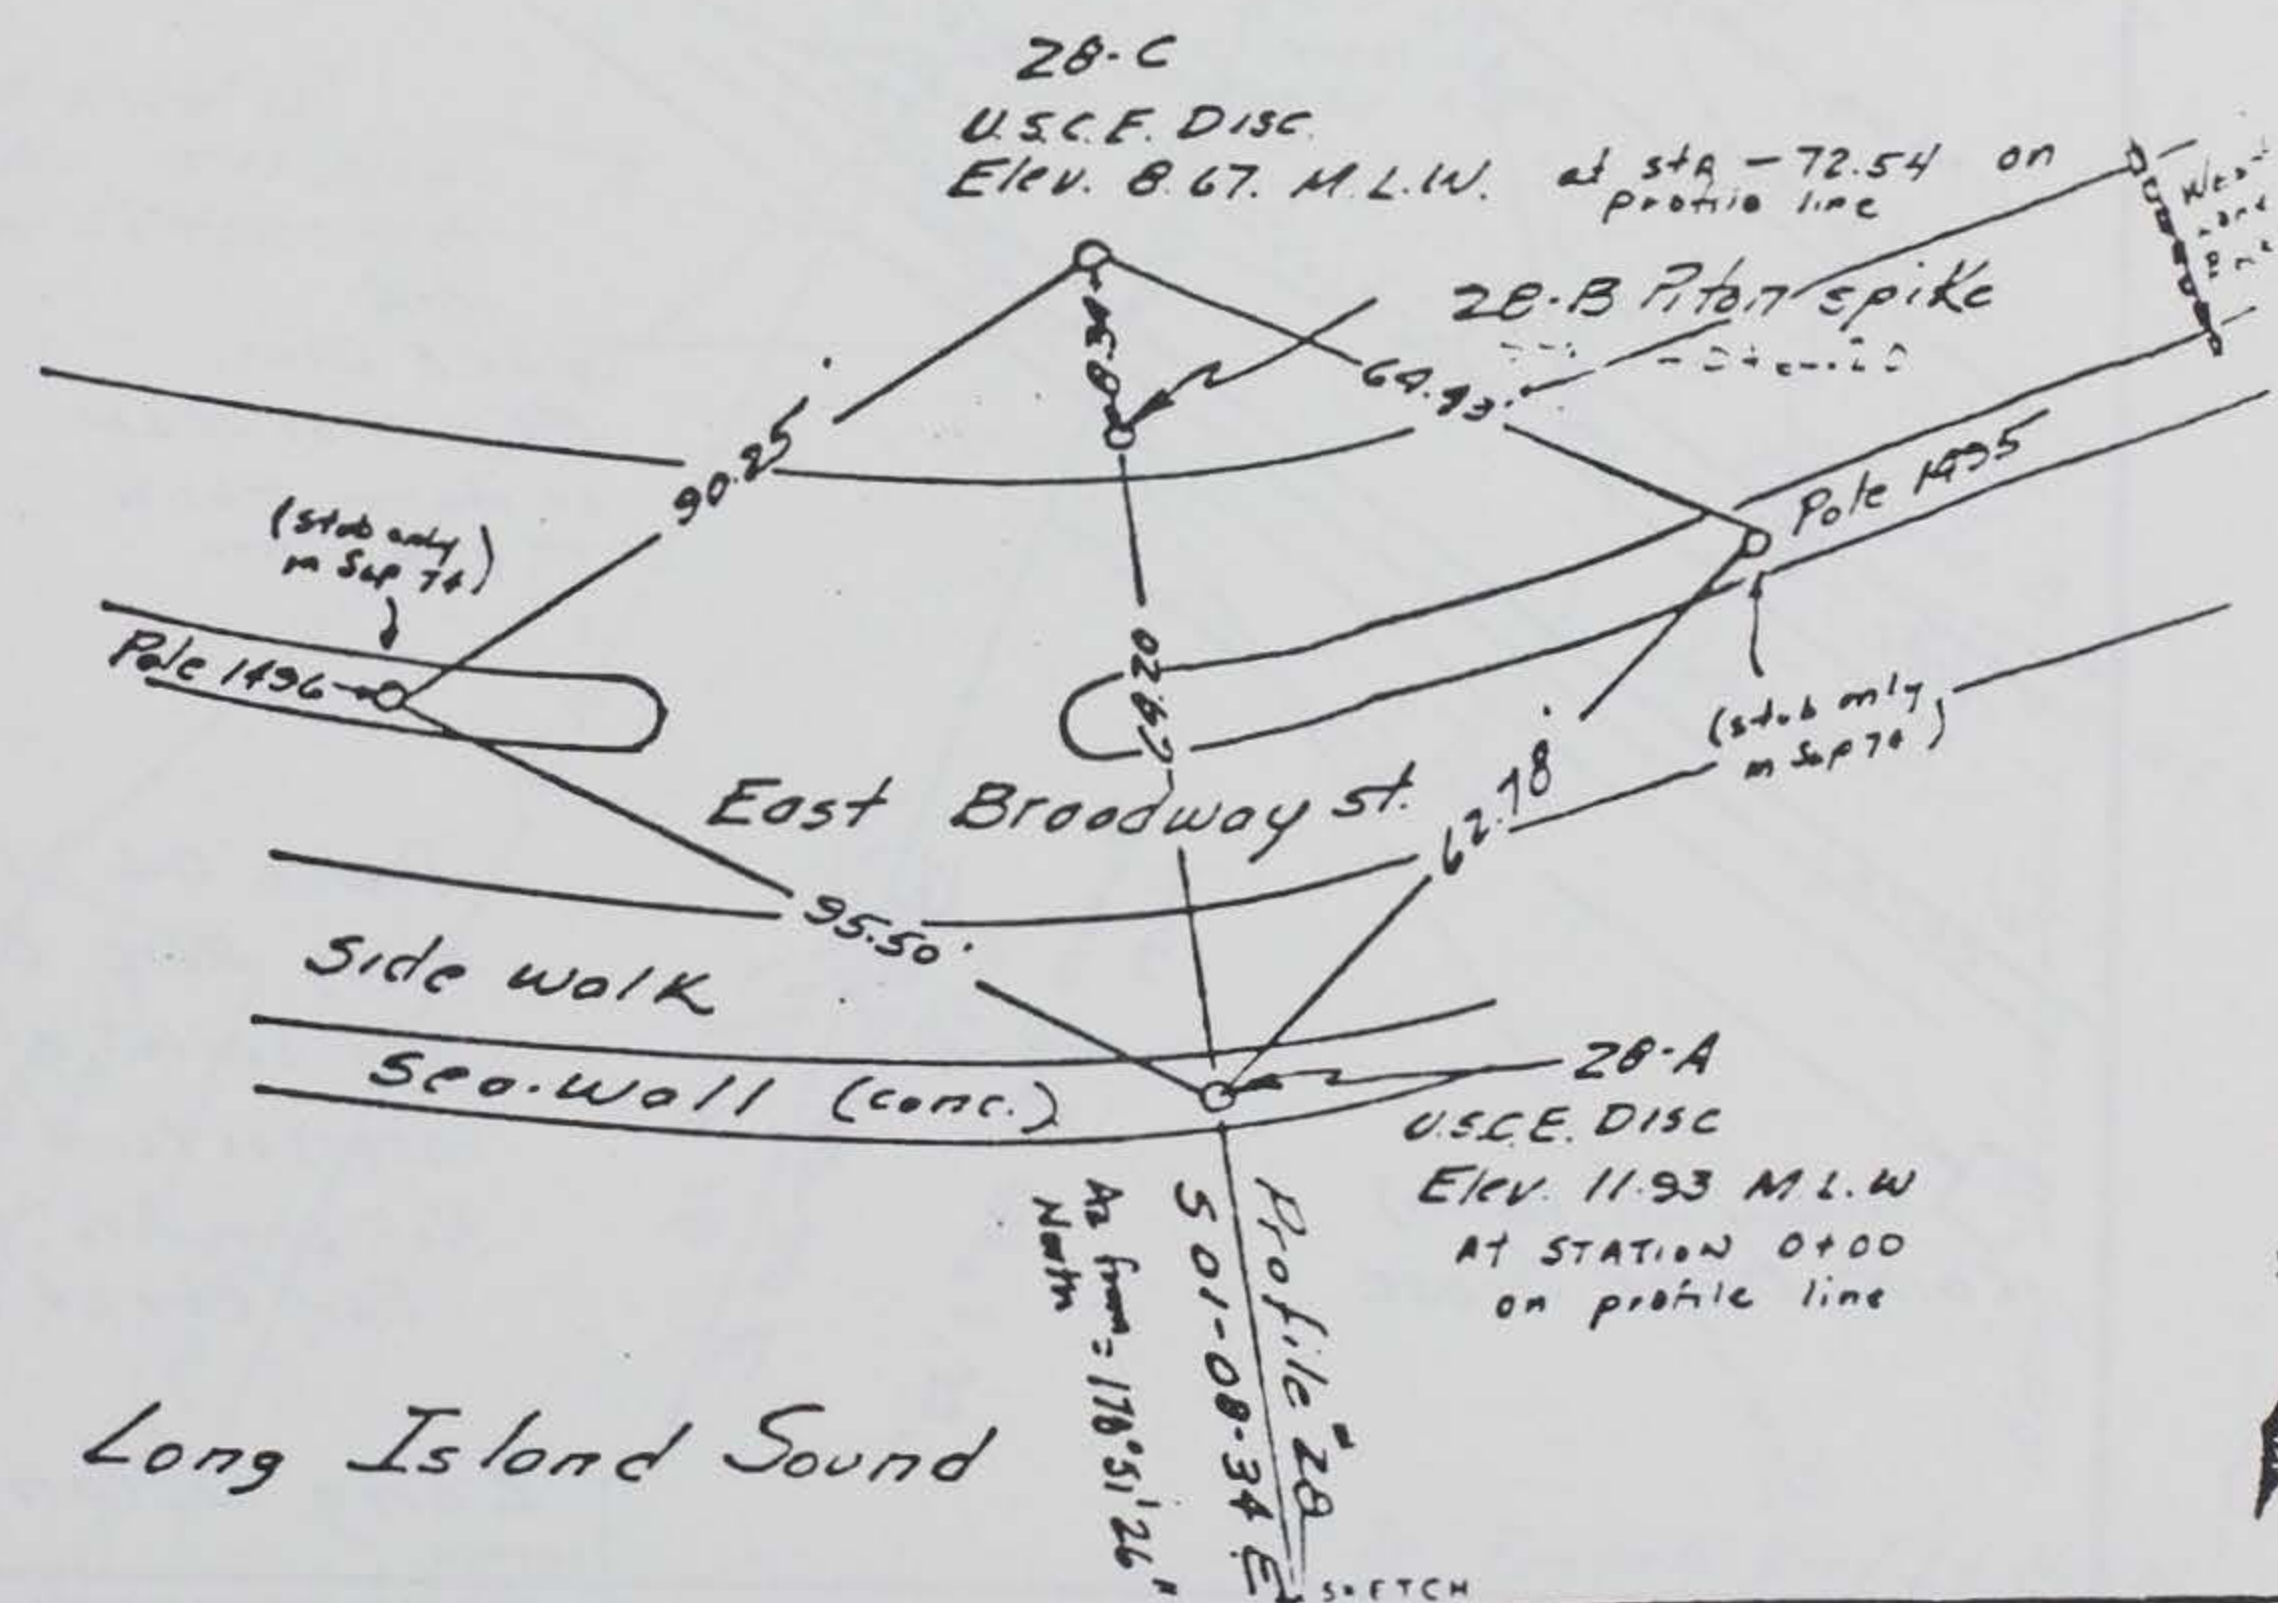 28-C
U.S.C.E. DISC
Elev. 8.67. M.L.W. at sta -72.54 on
profile line
28-B Piton spike
64.93'
90.25'
Pole 1495
(stub only
in Sep 74)
Pole 1496
(stub only
in Sep 74)
East Broadway st.
62.78'
95.50'
Side walk
Sea-wall (conc.)
28-A
U.S.C.E. DISC
Elev. 11.93 M.L.W
At STATION 0+00
on profile line
Profile #28
S 01-08-34 E
Az from = 178°51'26"
North
Long Island Sound